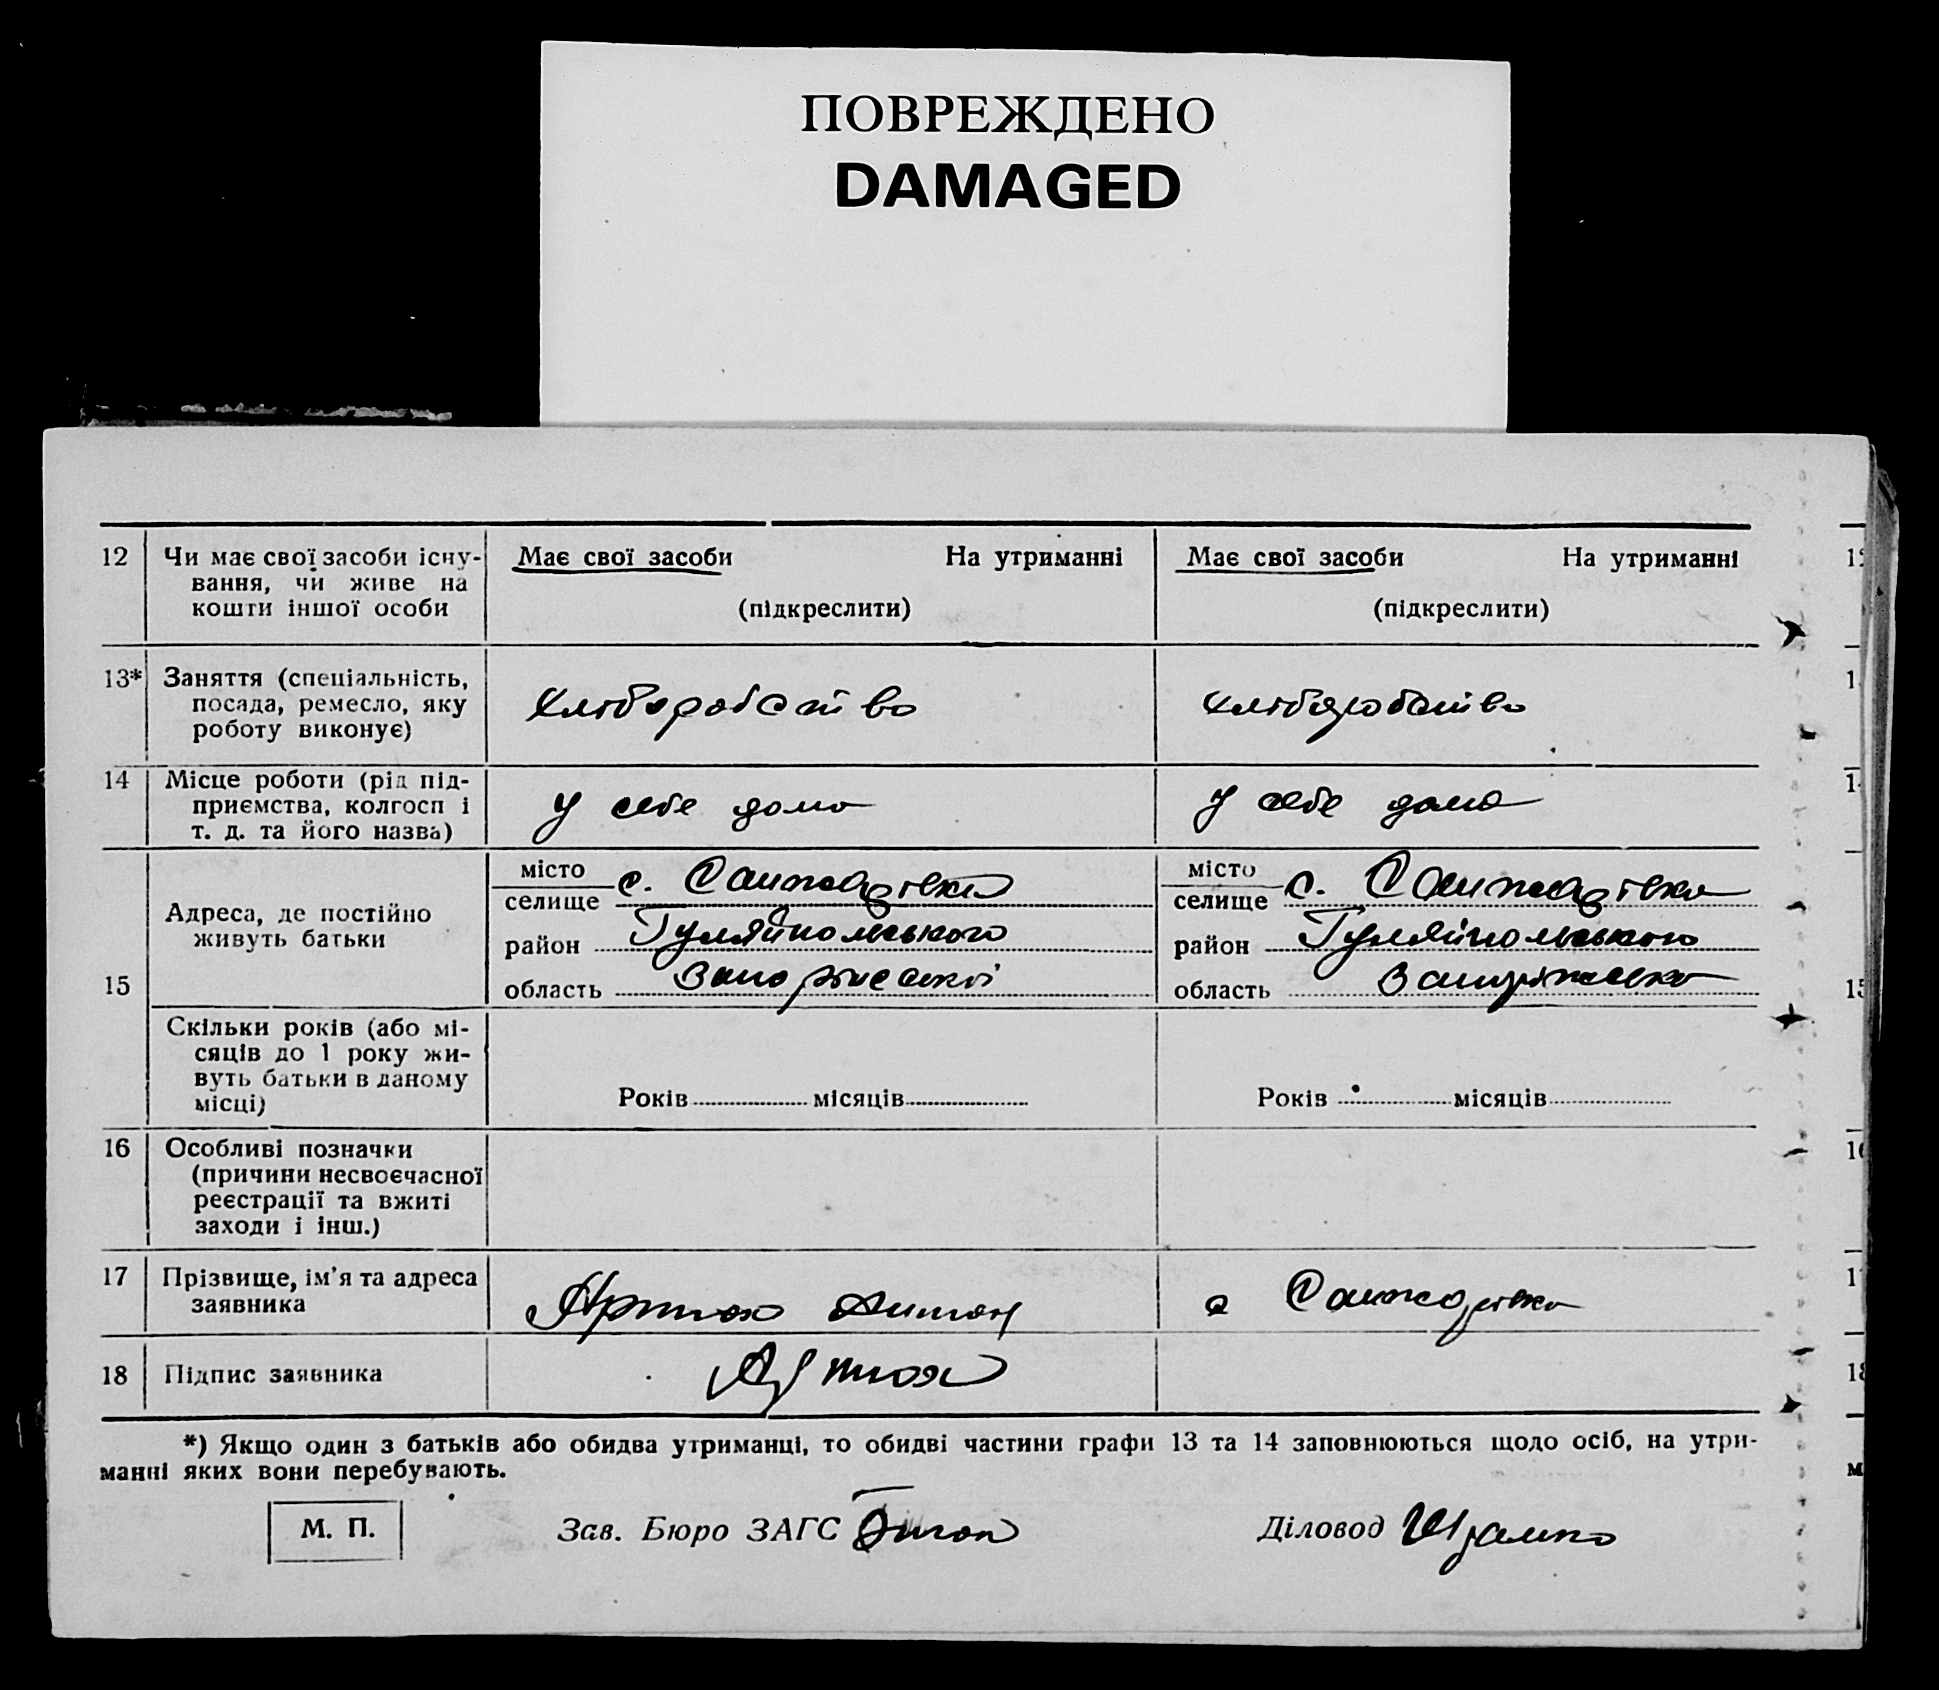 ПОВРЕЖДЕНО
DAMAGED
12 Чи має свої засоби існу-
вання, чи живе на
кошти іншої особи
Має свої засоби На утриманні
(підкреслити)
Має свої засоби На утриманні
(підкреслити)
13* Заняття (спеціальність,
посада, ремесло, яку
роботу виконує)
хліборобство
хліборобство
14 Місце роботи (рід під-
приємства, колгосп і
т. д. та його назва)
у себе дома
у себе дома
15
Адреса, де постійно
живуть батьки
місто
селище с. Санжарівка
район Гуляйпольського
область
місто
селище с. Санжарівка
район Гуляйпольського
область
Скільки років (або мі-
сяців до 1 року жи-
вуть батьки в даному
місці)
Років місяців
Років місяців
16 Особливі позначки
(причини несвоєчасної
реєстрації та вжиті
заходи і інш.)
17 Прізвище, ім'я та адреса
заявника
Антон
Санжарівка
18 Підпис заявника
*) Якщо один з батьків або обидва утриманці, то обидві частини графи 13 та 14 заповнюються щодо осіб, на утри-
манні яких вони перебувають.
М. П.
Зав. Бюро ЗАГС
Діловод
14
15
16
18
м